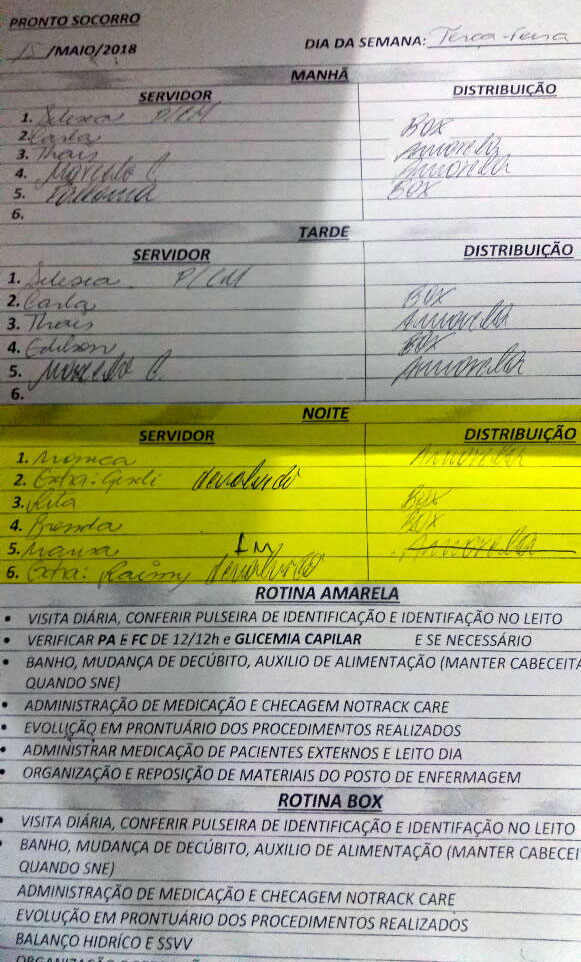 PRONTO SOCORRO
15/MAIO/2018 DIA DA SEMANA: Terça-Feira
MANHÃ
SERVIDOR DISTRIBUIÇÃO
1.
2. Carla BOX
3. Thais Amarela
4. Marcelo C. Amarela
5. BOX
6.
TARDE
SERVIDOR DISTRIBUIÇÃO
1.
2. Carla BOX
3. Thais Amarela
4. Edilson BOX
5. Marcelo C. Amarela
6.
NOITE
SERVIDOR DISTRIBUIÇÃO
1. Monica Amarela
2. Extra: Giseli
3. Rita Box
4. Brenda Box
5. Amarela
6. Extra:
ROTINA AMARELA
• VISITA DIÁRIA, CONFERIR PULSEIRA DE IDENTIFICAÇÃO E IDENTIFAÇÃO NO LEITO
• VERIFICAR PA E FC DE 12/12h e GLICEMIA CAPILAR E SE NECESSÁRIO
• BANHO, MUDANÇA DE DECÚBITO, AUXILIO DE ALIMENTAÇÃO (MANTER CABECEITA
QUANDO SNE)
• ADMINISTRAÇÃO DE MEDICAÇÃO E CHECAGEM NOTRACK CARE
• EVOLUÇÃO EM PRONTUÁRIO DOS PROCEDIMENTOS REALIZADOS
• ADMINISTRAR MEDICAÇÃO DE PACIENTES EXTERNOS E LEITO DIA
• ORGANIZAÇÃO E REPOSIÇÃO DE MATERIAIS DO POSTO DE ENFERMAGEM
ROTINA BOX
• VISITA DIÁRIA, CONFERIR PULSEIRA DE IDENTIFICAÇÃO E IDENTIFAÇÃO NO LEITO
• BANHO, MUDANÇA DE DECÚBITO, AUXILIO DE ALIMENTAÇÃO (MANTER CABECEI
QUANDO SNE)
ADMINISTRAÇÃO DE MEDICAÇÃO E CHECAGEM NOTRACK CARE
EVOLUÇÃO EM PRONTUÁRIO DOS PROCEDIMENTOS REALIZADOS
BALANÇO HIDRÍCO E SSVV